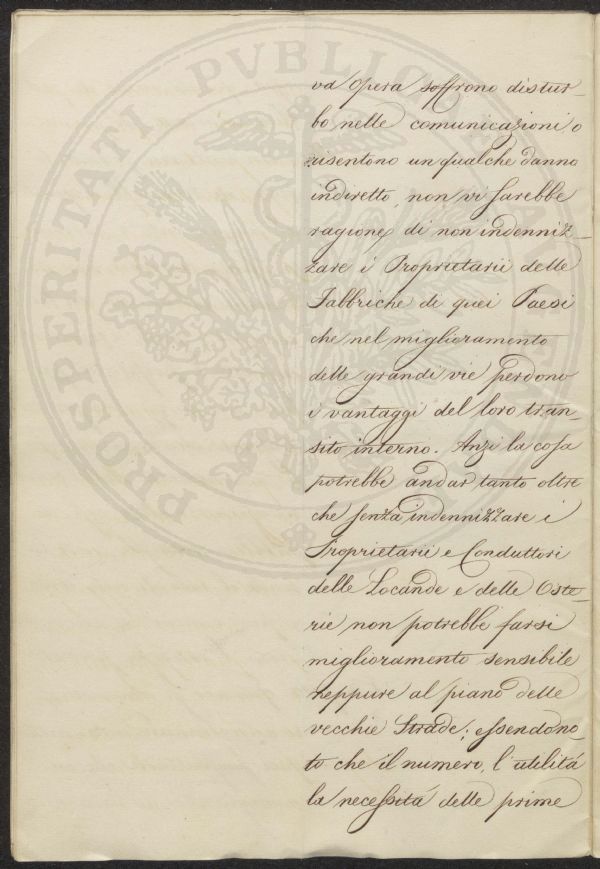 va opera soffrono distur-
bo nelle comunicazioni o
risentono un qualche danno
indiretto, non vi sarebbe
ragione di non indenniz-
zare i Proprietarii delle
Fabbriche di quei Paesi
che nel miglioramento
delle grandi vie perdono
i vantaggi del loro tran-
sito interno. Anzi la cosa
potrebbe andar tanto oltre
che senza indennizzare i
Proprietarii e Conduttori
delle Locande e delle Oste-
rie non potrebbe farsi
miglioramento sensibile
neppure al piano delle
vecchie Strade; essendo no-
to che il numero, l'utilità
la necessità delle prime
PROSPERITATI PVBLICAE